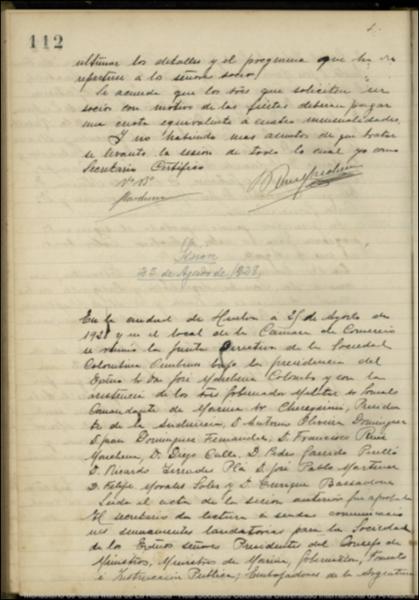 112
ultimar los detalles y el programa que ha de
repartirse a los señores socios
Se acuerda que los Sres que soliciten ser
socios con motivo de las fiestas deberan pagar
una cuota equivalente a cuatro mensualidades.
Y no habiendo mas asuntos de que tratar
se levanto la sesion de todo lo cual yo como
Secretario Certifico
Vº Bº
Sesion
22 de Agosto de 1928
En la ciudad de Huelva a de Agosto de
1928 y en el local de la Camara de Comercio
se reunio la Junta Directiva de la Sociedad
Colombina Onubense bajo la presidencia del
Don José Marchena Colombo y con la
asistencia de los Sres Gobernador Militar Sr
Comandante de Marina Sr
de la Audiencia, D. Antonio Oliveira Dominguez
D. Juan Dominguez Fernandez, D. Francisco
Marchena, D. Diego Calle, D. Pedro Garrido Perelló
D. Ricardo Terrades Plá D. José Pablo Martinez
D. Felipe Morales Soler y D. Enrique Bassadona
Leida el acta de la sesion anterior fue aprobada
El secretario da lectura a sendas comunicacio
nes laudatorias para la Sociedad
de los señores Presidente del Consejo de
Ministros, Ministros de Marina, Gobernacion, Fomento
e Instruccion Publica; Embajadores de la Argentina